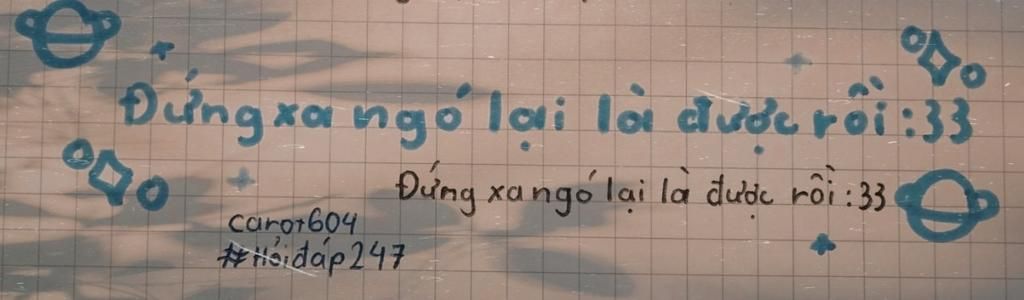 Đứng xa ngó lại là được rồi :33
Đứng xa ngó lại là được rồi :33
carot604
#Hỏiđáp247